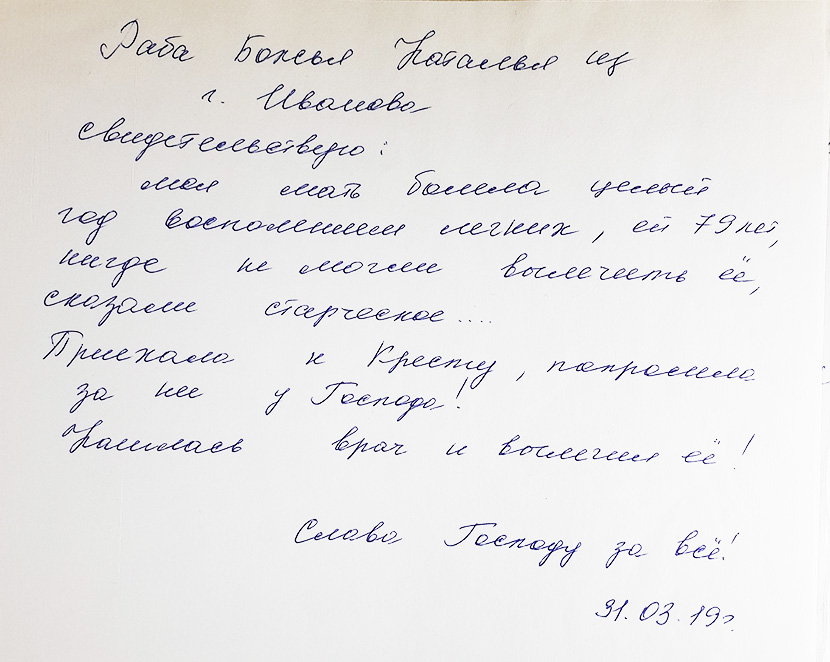 Раба Божья Наталья из
г. Иваново
свидетельствую:
моя мать болела целый
год воспалением легких, ей 79 лет,
нигде не могли вылечить её,
сказали старческое....
Приехала к Кресту, попросила
за нее у Господа!
Нашлась врач и вылечил её!
Слава Господу за всё!
31.03.19г.